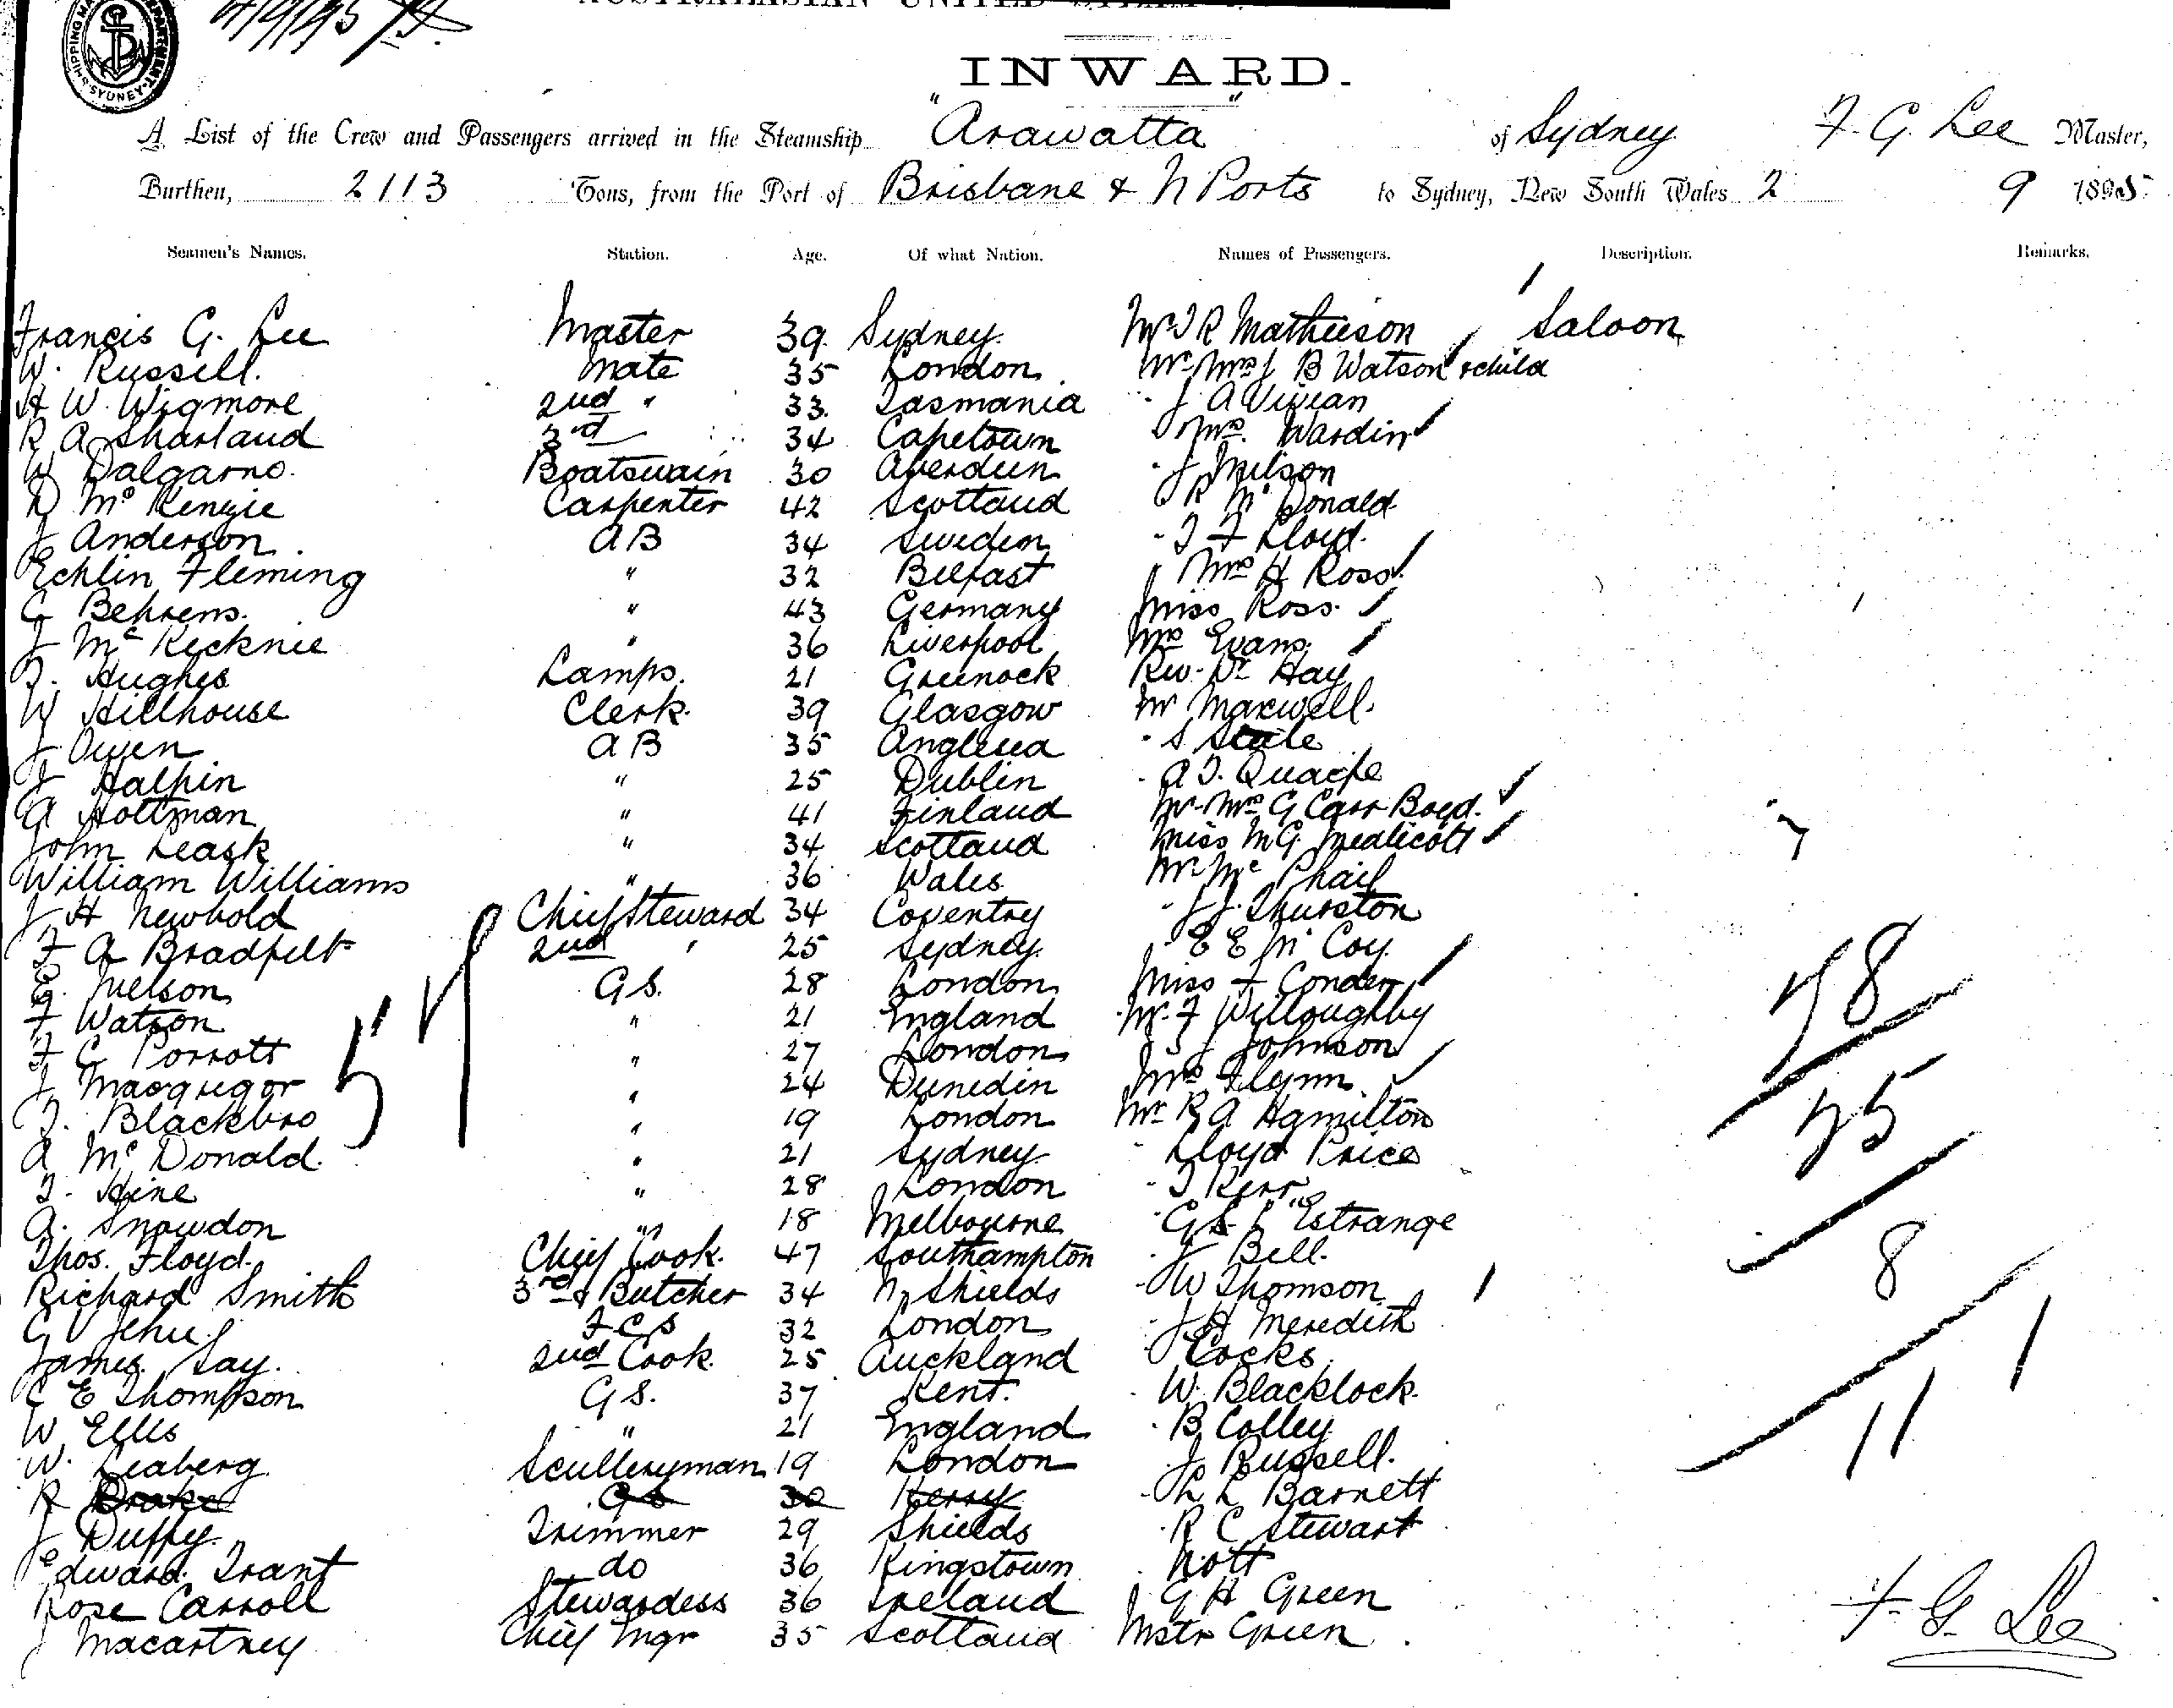 SHIPPING MA PARTMENT SYDNEY
4/9/95
AUSTRALASIAN UNITED STEAM
INWARD.
A List of the Crew and Passengers arrived in the Steamship "Arawatta" of Sydney F. G. Lee Master,
Burthen, 2113 Tons, from the Port of Brisbane & N Ports to Sydney, New South Wales 2 9 1895
Seamen's Names. Station. Age. Of what Nation. Names of Passengers. Description. Remarks.
Francis G. Lee Master 39 Sydney. Mr J R Mathieson Saloon
W. Russell. Mate 35 London. Mr Mrs J B Watson & child
H W Wigmore 2nd " 33. Tasmania - J A Vivian
R A Sharland 3rd 34 Capetown Mrs. Wardin
W Dalgarno. Boatswain 30 Aberdeen - J Milson
D McKenzie Carpenter 42 Scotland R McDonald
J Anderson. AB 34 Sweden - T F Lloyd.
Echlin Fleming " 32 Belfast Mrs H Ross.
C Behrens. " 43 Germany Miss Ross.
J McKecknie " 36 Liverpool Mrs Evans.
T. Hughes Lamps. 21 Greenock Rev. Dr Hay
W Hillhouse Clerk. 39 Glasgow Mr Maxwell.
J Owen AB 35 Anglesea - S Steele
J Halpin " 25 Dublin - A J. Quaife
A Holtman " 41 Finland Mr Mrs G Carr Boyd.
John Leask " 34 Scotland Miss M G. Medlicott
William Williams " 36 Wales Mr McPhail
J H Newbold Chief Steward 34 Coventry - J J. Thurston
F A Bradfelt 2nd " 25 Sydney. E E McCoy.
E. Nelson GS. 28 London Miss F Conder
F Watson " 21 England Mr. F Willoughby
F C Porrott " 27 London J Johnson
J Macgregor " 24 Dunedin Mrs Flynn
T. Blackbro " 19 London Mr R A Hamilton
A McDonald. " 21 Sydney - Lloyd Price
T. Hine " 28 London - J Kerr
A. Snowdon " 18 Melbourne - G S L'Estrange
Thos. Floyd. Chief Cook. 47 Southampton - J Bell.
Richard Smith 3rd & Butcher 34 N. Shields - W Thomson
G V Jehu. FCS 32 London - J H Meredith
James Lay. 2nd Cook. 25 Auckland Cocks.
C E Thompson GS. 37 Kent. - W. Blacklock.
W Ellis " 21 England - B Colley
W. Leaberg Sculleryman 19 London - J Russell.
R Drake GS 30 Kerry - L L Barnett
J Duffy. Trimmer 29 Shields - R C Stewart
Edward Trant do 36 Kingstown Nott
Rose Carroll Stewardess 36 Ireland G H Green
J Macartney Chief Mgr 35 Scotland Mstr Green
57
78
35
8
11 1
F. G. Lee